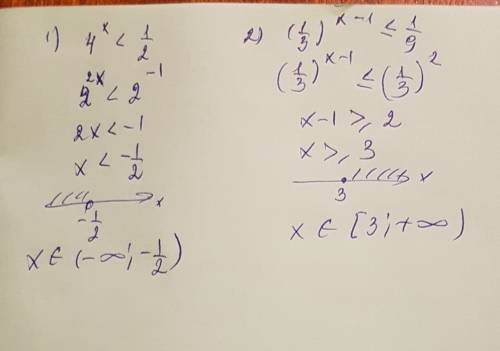 1) 4^x < 1/2
2^2x < 2^-1
2x < -1
x < -1/2
-1/2 x
x ∈ (-∞; -1/2)
2) (1/3)^x-1 ≤ 1/9
(1/3)^x-1 ≤ (1/3)^2
x-1 ≥, 2
x ≥, 3
3 x
x ∈ [3; +∞)